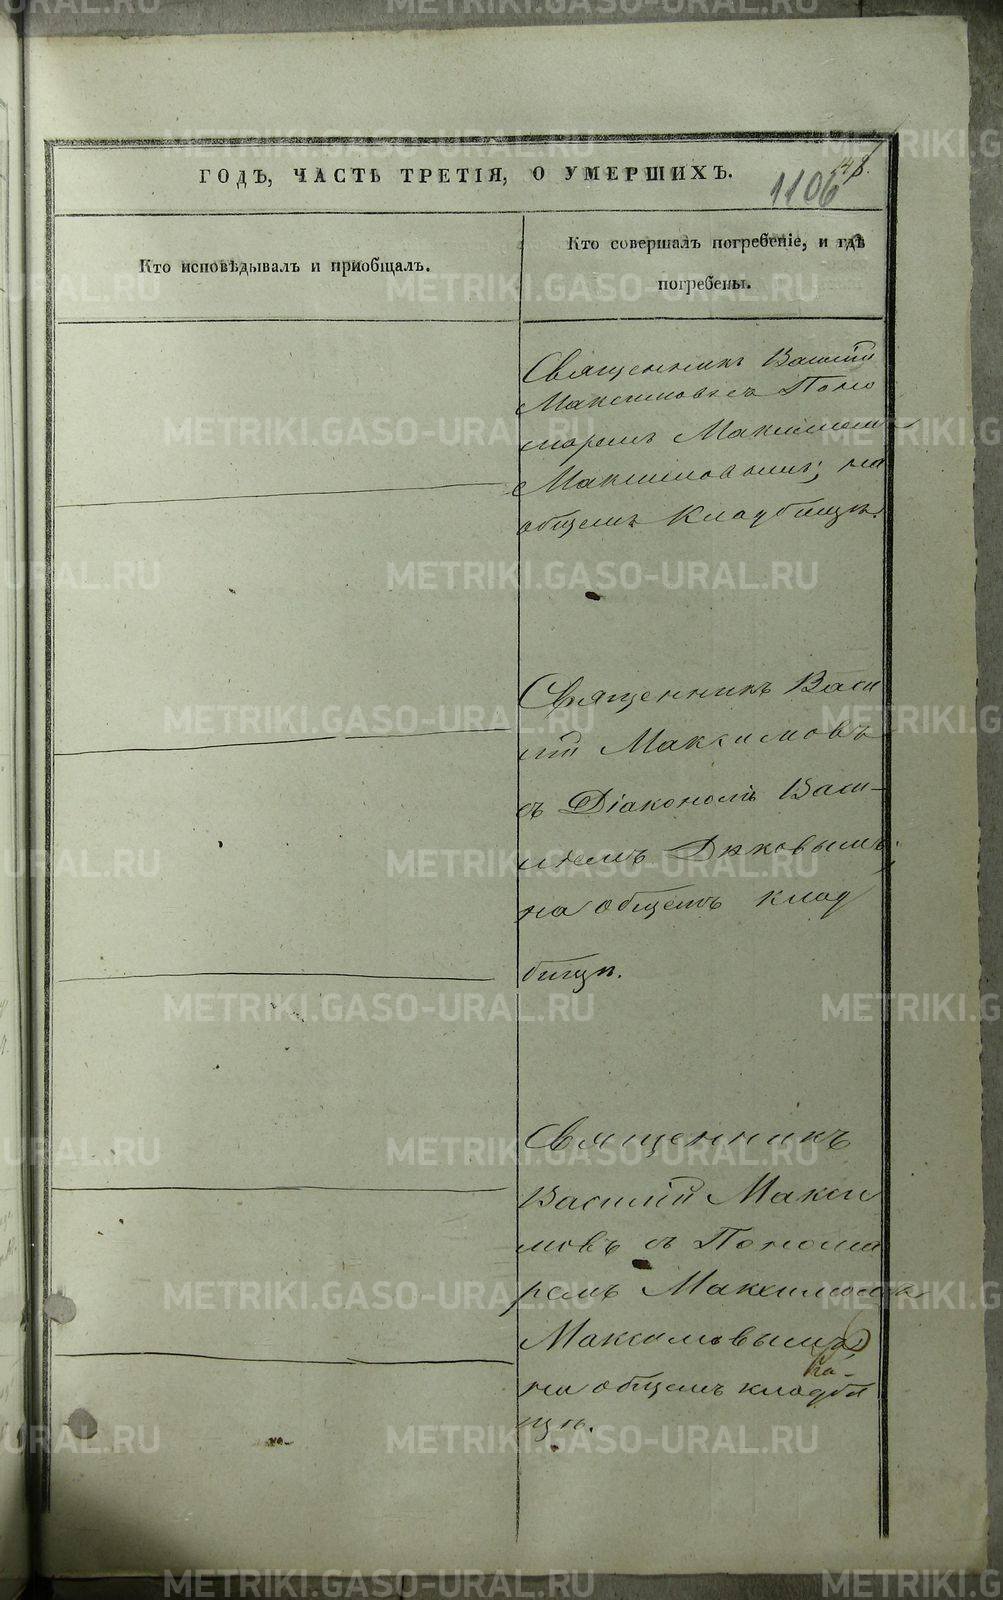 ГОДЪ, ЧАСТЬ ТРЕТІЯ, О УМЕРШИХЪ.
1106
148.
Кто исповѣдывалъ и пріобщалъ.
Кто совершалъ погребеніе, и гдѣ
погребены.
Священникъ Василій
Максимовъ съ Поно
маремъ Максимомъ
Максимовымъ; на
общемъ кладбищѣ.
Священникъ Васи
лій Максимовъ
съ Діакономъ Васи-
ліемъ Дяковымъ;
на общемъ клад
бищѣ.
Священникъ
Василій Макси
мовъ съ Понома
ремъ Максимомъ
Максимовымъ;
на общемъ кладби
щѣ.
METRIKI.GASO-URAL.RU